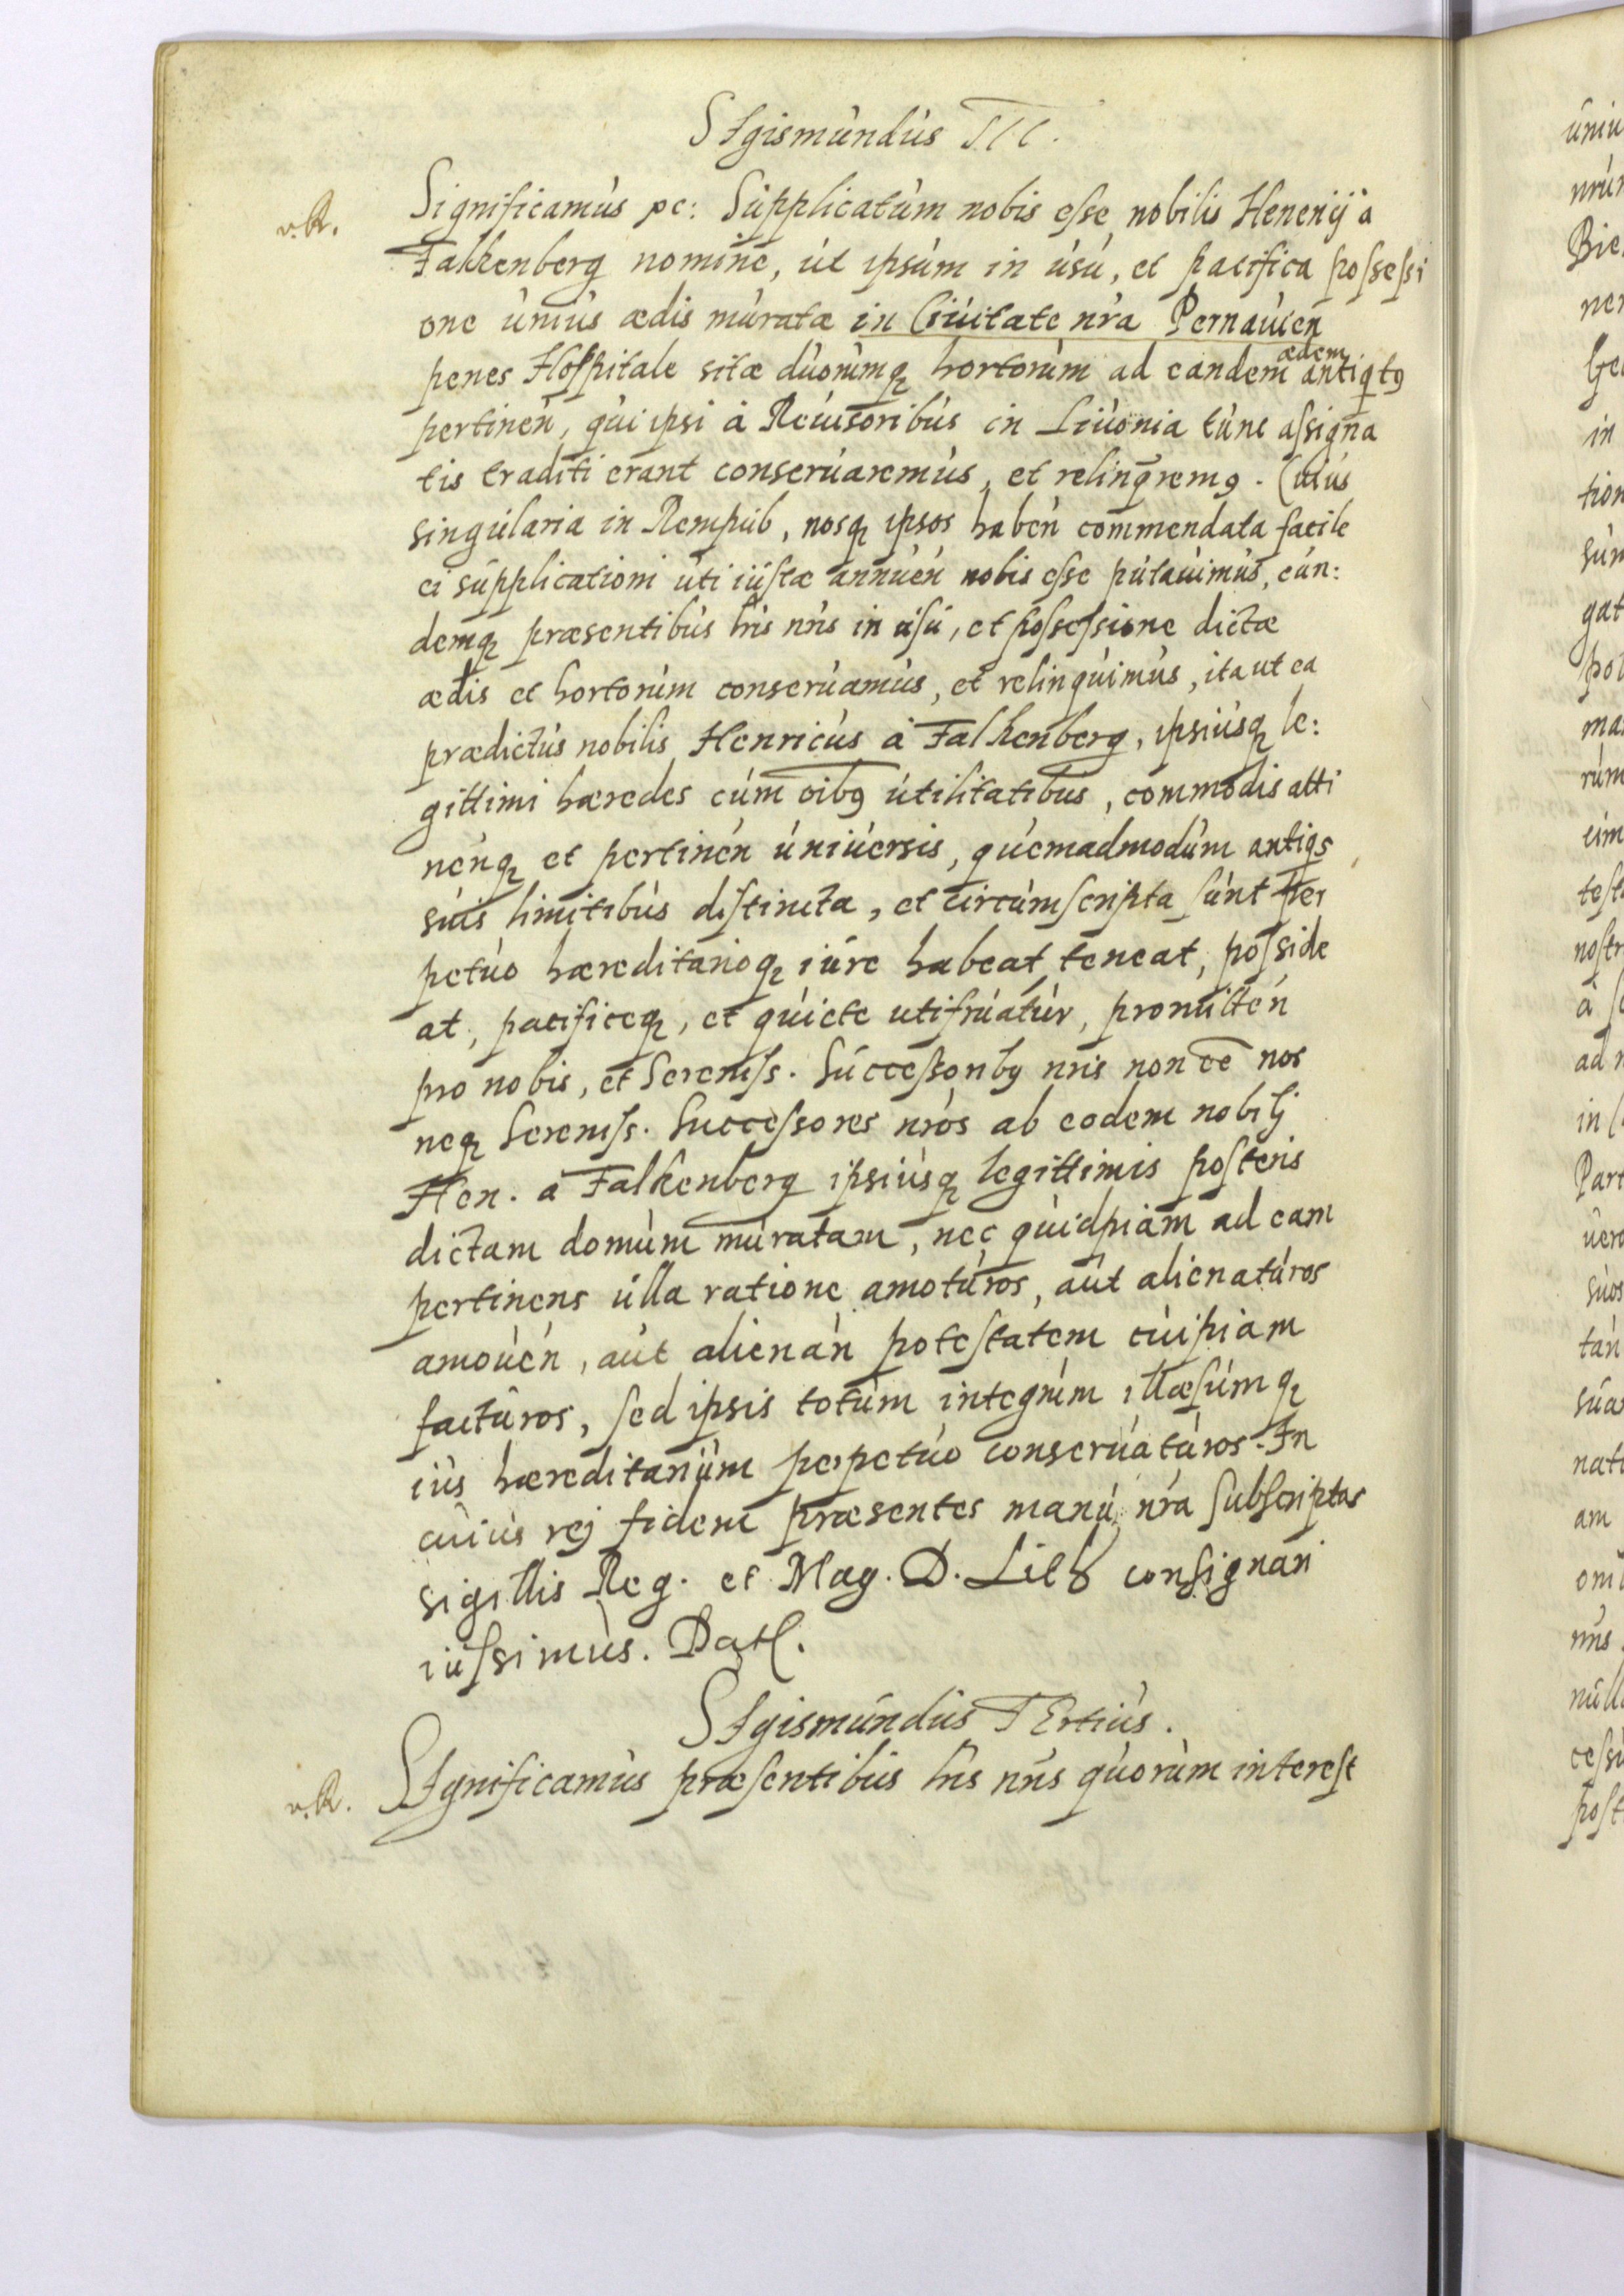 SIgismundus III.
v. R.
Significamus pc: Supplicatum nobis esse nobilis Henenij à
Falkenberg nomine, ut ipsum in usu, et pacifica possessi
one unius ædis muratæ in Ciuitate nra Pernauien
penes Hospitale sitæ duorumq hortorum ad eandem ædem antiqt9
pertinen, qui ipsi à Reuisoribus in Liuonia tunc assigna
tis traditi erant conseruaremus, et relinqrem9. Cuius
singularia in Rempub, nosq ipsos haben commendata facile
ei supplicationi uti iustæ annuen nobis esse putauimus, eun:
demq præsentibus lris nris in usu, et possessione dictæ
ædis et hortorum conseruamus, et relinquimus, ita ut ea
prædictus nobilis Henricus à Falkenberg, ipsiusq le:
gittimi hæredes cum oib9 utilitatibus, commodis atti
nenq et pertinen uniuersis, quemadmodum antiqs
suis limitibus distincta, et circumscripta sunt per
petuo hæreditarioq iure habeat teneat, posside
at, pacificeq, et quiete utifruatur, promitten
pro nobis, et Sereniss. Successorib9 nris non ee nos
neq Sereniss. Successores nros ab eodem nobilj
Hen. à Falkenberg ipsiusq legittimis posteris
dictam domum muratam, nec quidpiam ad eam
pertinens ulla ratione amoturos, aut alienaturos
amouen, aut alienan potestatem cuipiam
facturos, sed ipsis totum integrum illæsumq
ius hæreditarium perpetuo conseruaturos. In
cuius rej fidem præsentes manu nra subscriptas
sigillis Reg. et Mag. D. Litt consignari
iussimus. Dat.
SIgismundus TErtius.
v. R.
SIgnificamus præsentibus lris nris quorum interest
úniu
nrúm
Bie
nen
Ge
in
tion
sum
gat
pot
ma
rum
eim
test
nostr
à
ad n
in
Part
uero
suos
tan
sua
nati
am
omi
nris
nulla
cessu
post